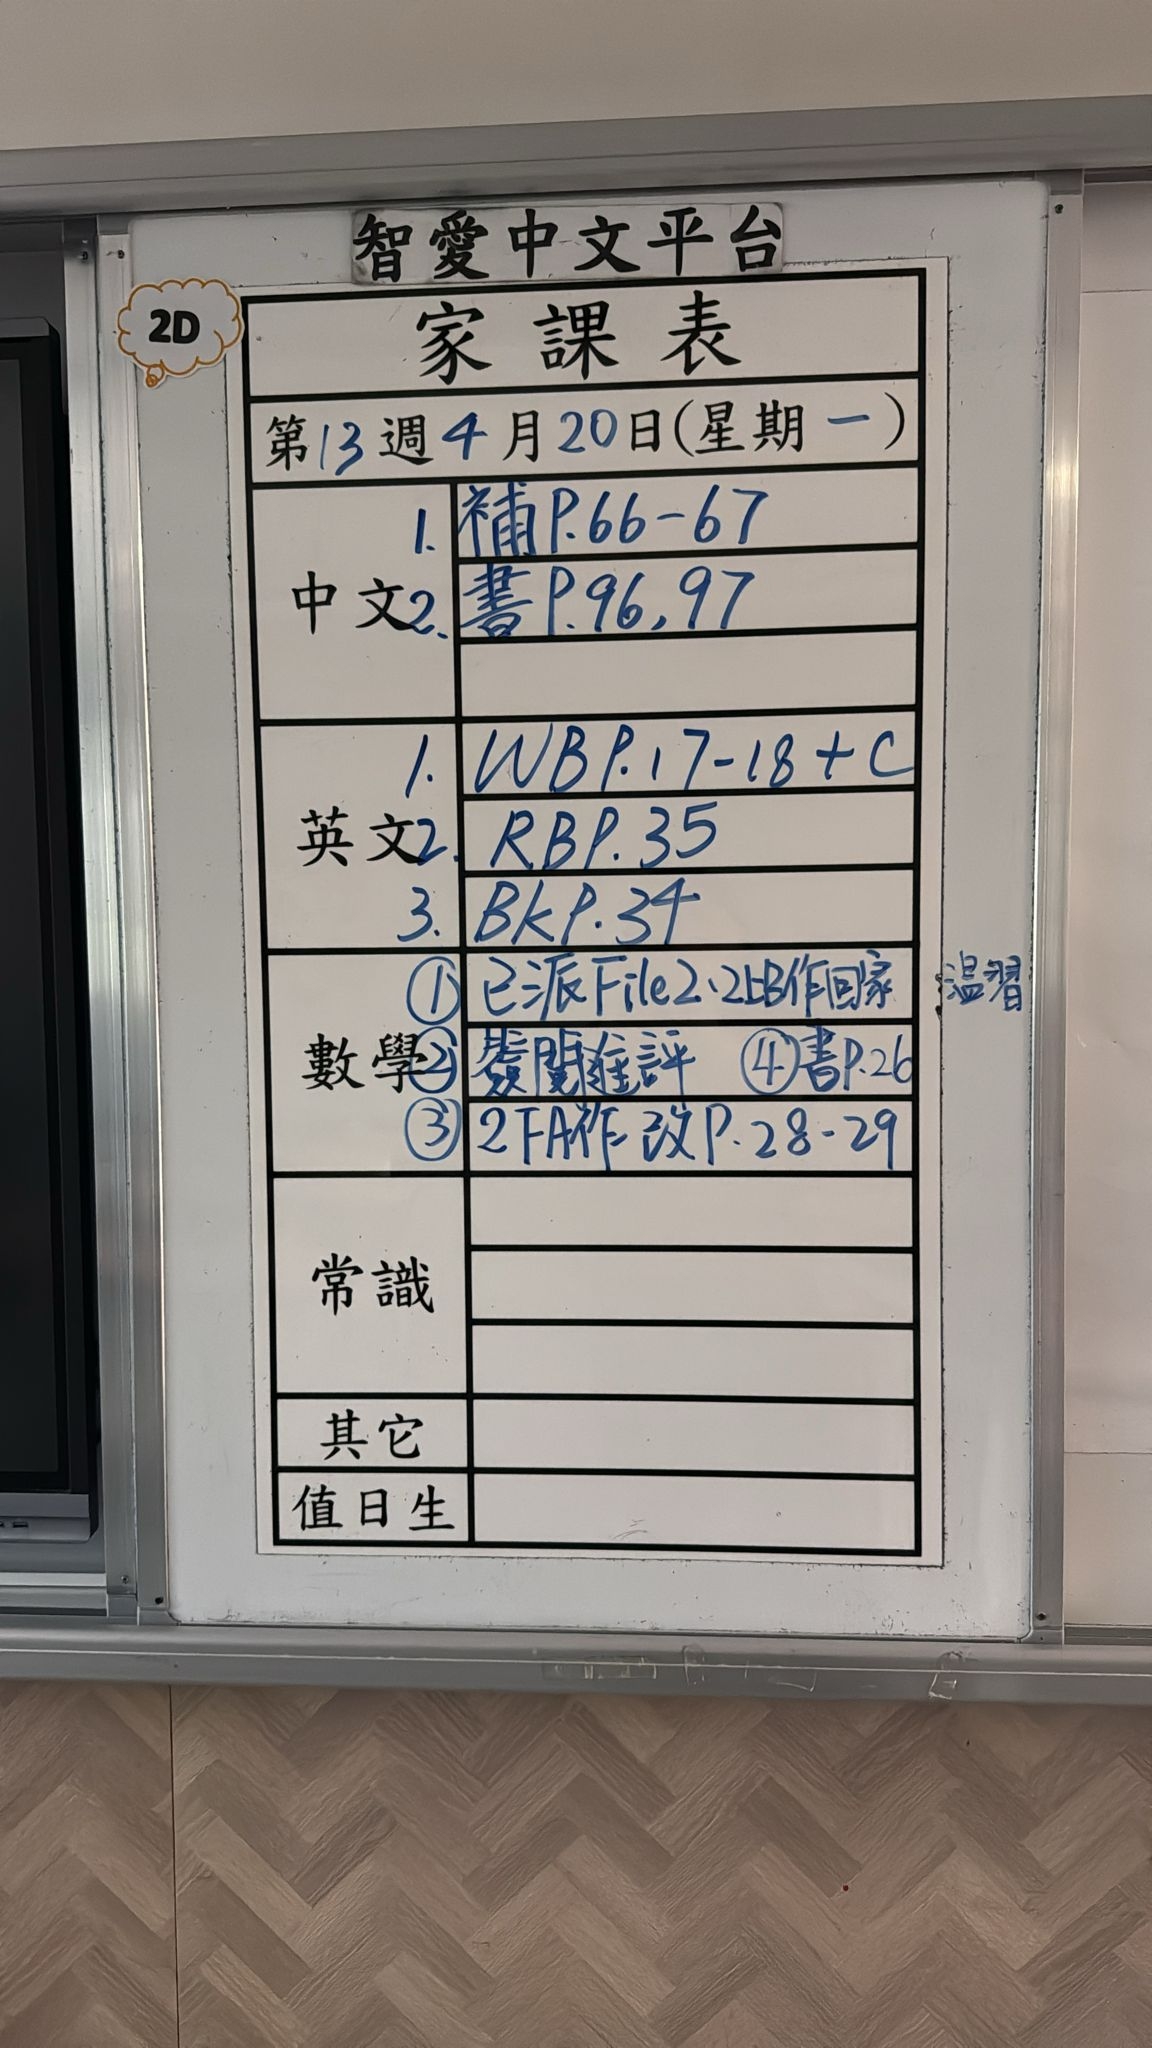 智愛中文平台
2D
家課表
第13週4月20日(星期一)
中文
1. 補P.66-67
2. 書P.96,97
英文
1. WBP.17-18+C
2. RBP.35
3. BKP.34
數學
① 已派File2、2上B作回家温習
② 簽閱進評 ④書P.26
③ 2下A作改P.28-29
常識
其它
值日生